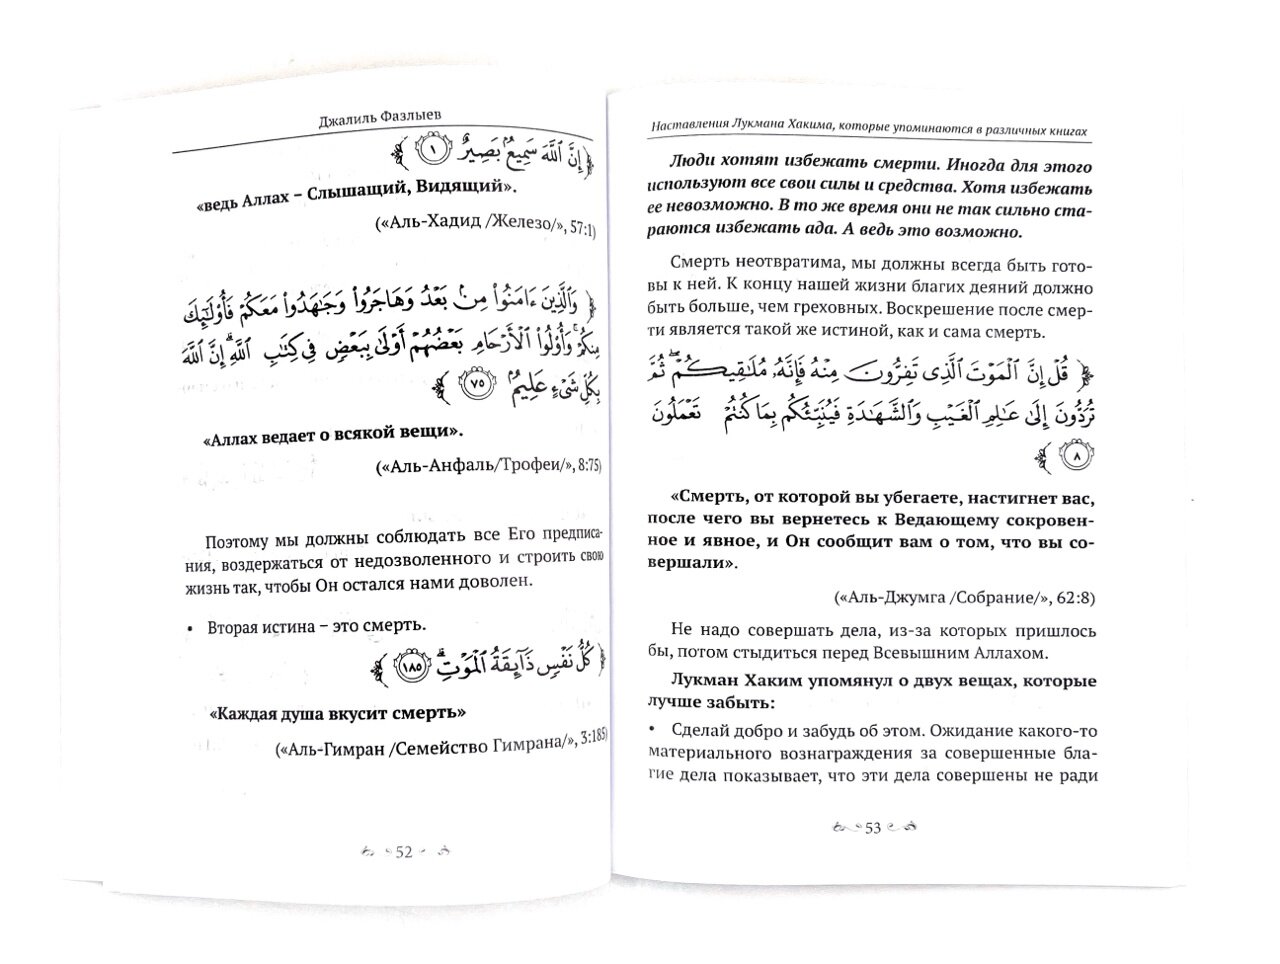 Джалиль Фазлыев
﴿ إِنَّ ٱللَّهَ سَمِيعُۢ بَصِيرٌ ١ ﴾
«ведь Аллах – Слышащий, Видящий».
(«Аль-Хадид /Железо/», 57:1)
﴿ وَٱلَّذِينَ ءَامَنُوا۟ مِنۢ بَعْدُ وَهَاجَرُوا۟ وَجَٰهَدُوا۟ مَعَكُمْ فَأُو۟لَٰٓئِكَ
مِنكُمْ ۚ وَأُو۟لُوا۟ ٱلْأَرْحَامِ بَعْضُهُمْ أَوْلَىٰ بِبَعْضٍ فِى كِتَٰبِ ٱللَّهِ ۗ إِنَّ ٱللَّهَ
بِكُلِّ شَىْءٍ عَلِيمُۢ ٧٥ ﴾
«Аллах ведает о всякой вещи».
(«Аль-Анфаль/Трофеи/», 8:75)
Поэтому мы должны соблюдать все Его предписа-
ния, воздержаться от недозволенного и строить свою
жизнь так, чтобы Он остался нами доволен.
• Вторая истина – это смерть.
﴿ كُلُّ نَفْسٍ ذَآئِقَةُ ٱلْمَوْتِ ۗ ١٨٥ ﴾
«Каждая душа вкусит смерть»
(«Аль-Гимран /Семейство Гимрана/», 3:185)
52
Наставления Лукмана Хакима, которые упоминаются в различных книгах
Люди хотят избежать смерти. Иногда для этого
используют все свои силы и средства. Хотя избежать
ее невозможно. В то же время они не так сильно ста-
раются избежать ада. А ведь это возможно.
Смерть неотвратима, мы должны всегда быть гото-
вы к ней. К концу нашей жизни благих деяний должно
быть больше, чем греховных. Воскрешение после смер-
ти является такой же истиной, как и сама смерть.
﴿ قُلْ إِنَّ ٱلْمَوْتَ ٱلَّذِى تَفِرُّونَ مِنْهُ فَإِنَّهُۥ مُلَٰقِيكُمْ ۖ ثُمَّ
تُرَدُّونَ إِلَىٰ عَٰلِمِ ٱلْغَيْبِ وَٱلشَّهَٰدَةِ فَيُنَبِّئُكُم بِمَا كُنتُمْ تَعْمَلُونَ
٨ ﴾
«Смерть, от которой вы убегаете, настигнет вас,
после чего вы вернетесь к Ведающему сокровен-
ное и явное, и Он сообщит вам о том, что вы со-
вершали».
(«Аль-Джумга /Собрание/», 62:8)
Не надо совершать дела, из-за которых пришлось
бы, потом стыдиться перед Всевышним Аллахом.
Лукман Хаким упомянул о двух вещах, которые
лучше забыть:
• Сделай добро и забудь об этом. Ожидание какого-то
материального вознаграждения за совершенные бла-
гие дела показывает, что эти дела совершены не ради
53